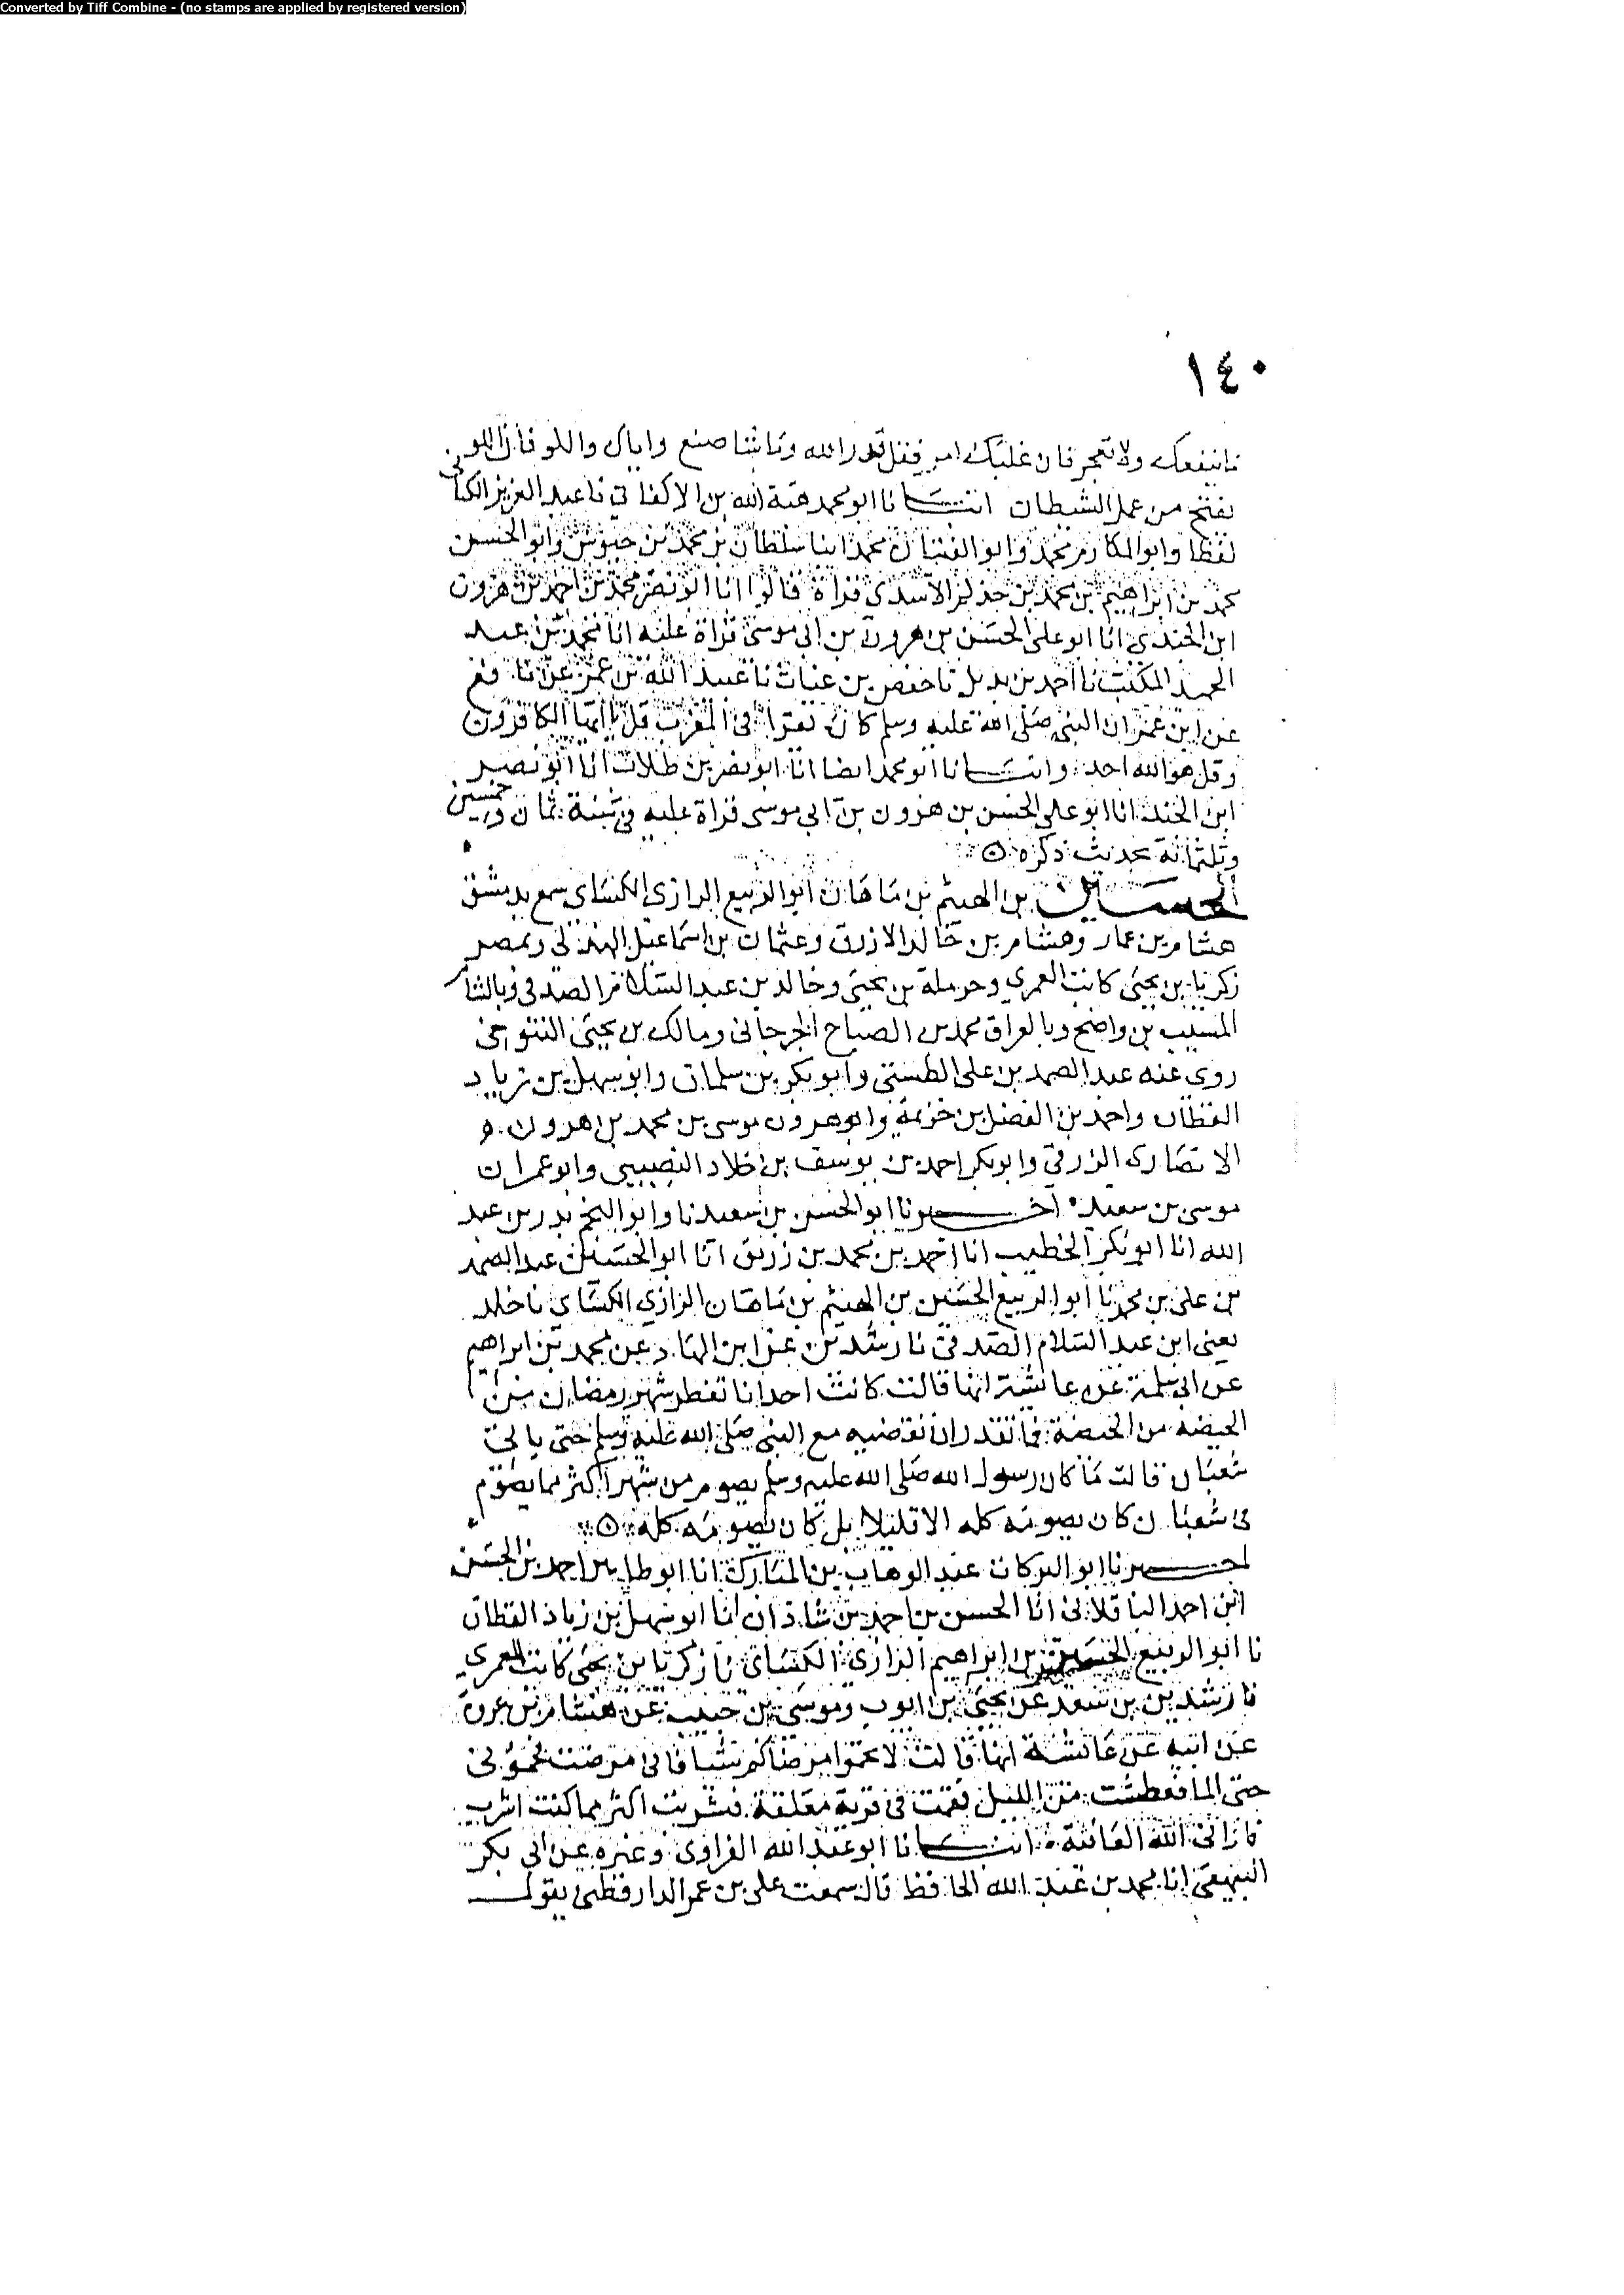 Converted by Tiff Combine - (no stamps are applied by registered version)
١٤٠
ما ينفعك ولا تعجز فان غلبك امر فقل قدر الله وما شا صنع واياك واللو فان اللو
تفتح من عمل الشيطان انبانا ابو محمد هبة الله بن الاكفاني نا عبد العزيز الكتاني
لفظا وابو المكارم محمد وابو الفتيان محمد ابنا سلطان بن محمد بن حيوش وابو الحسين
محمد بن ابراهيم بن محمد بن حذلم الاسدي قراة قالوا انا ابو نصر محمد بن احمد بن هرون
ابن الجندي انا ابو علي الحسن بن هرون بن ابي موسى قراة عليه انا محمد بن عبد
الحميد المكتب نا احمد بن بديل نا حفص بن غياث نا عبيد الله بن عمر عن نافع
عن ابن عمر ان النبي صلى الله عليه وسلم كان يقرا في المغرب قل يا ايها الكافرون
وقل هو الله احد وانبانا ابو محمد ايضا انا ابو نصر بن طلاب انا ابو نصر
ابن الجندي انا ابو علي الحسن بن هرون بن ابي موسى قراة عليه في سنة ثمان وخمسين
وثلثمائة بحديث ذكره
الحسين بن الهيثم بن ماهان ابو الربيع الرازي الكسائي سمع بدمشق
هشام بن عمار وهشام بن خالد الازرق وعثمان بن اسماعيل الهذلي وبمصر
زكريا بن يحيى كاتب العمري وحرملة بن يحيى وخالد بن عبد السلام الصدفي وبالشام
المسيب بن واضح وبالعراق محمد بن الصباح الجرجاني ومالك بن يحيى التنوخي
روى عنه عبد الصمد بن علي الطستي وابو بكر بن سلمان وابو سهل بن زياد
القطان واحمد بن الفضل بن خزيمة وابو هرون موسى بن محمد بن هرون
الانصاري الزرقي وابو بكر احمد بن يوسف بن خلاد النصيبي وابو عمران
موسى بن سعيد اخبرنا ابو الحسن بن سعيد نا وابو النجم بدر بن عبد
الله انا ابو بكر الخطيب انا احمد بن محمد بن رزيق انا ابو الحسين عبد الصمد
بن علي بن محمد نا ابو الربيع الحسين بن الهيثم بن ماهان الرازي الكسائي نا خالد
يعني ابن عبد السلام الصدفي نا رشدين عن ابن الهاد عن محمد بن ابراهيم
عن ابي سلمة عن عائشة انها قالت كانت احدانا تفطر شهر رمضان من
الحيضة من الحيضة فما تقدر ان تقضيه مع النبي صلى الله عليه وسلم حتى ياتي
شعبان قالت ما كان رسول الله صلى الله عليه وسلم يصوم من شهر اكثر مما يصوم
في شعبان كان يصومه كله الا قليلا بل كان يصومه كله
اخبرنا ابو البركات عبد الوهاب بن المبارك انا ابو طاهر احمد بن الحسن
ابن احمد الباقلاني انا الحسن بن احمد بن شاذان انا ابو سهل بن زياد القطان
نا ابو الربيع الحسين بن ابراهيم الرازي الكسائي نا زكريا بن يحيى كاتب العمري
نا رشدين بن سعد عن يحيى بن ايوب وموسى بن حبيب عن هشام بن عروة
عن ابيه عن عائشة انها قالت لا تحموا مرضاكم شيا فاني مرضت فحموني
حتى الما فعطشت من الليل فقمت في قربة معلقة فشربت اكثر مما كنت اشرب
فارانى الله العافية انبانا ابو عبد الله الفراوي وغيره عن ابي بكر
البيهقي انا محمد بن عبد الله الحافظ قال سمعت علي بن عمر الدارقطني يقول